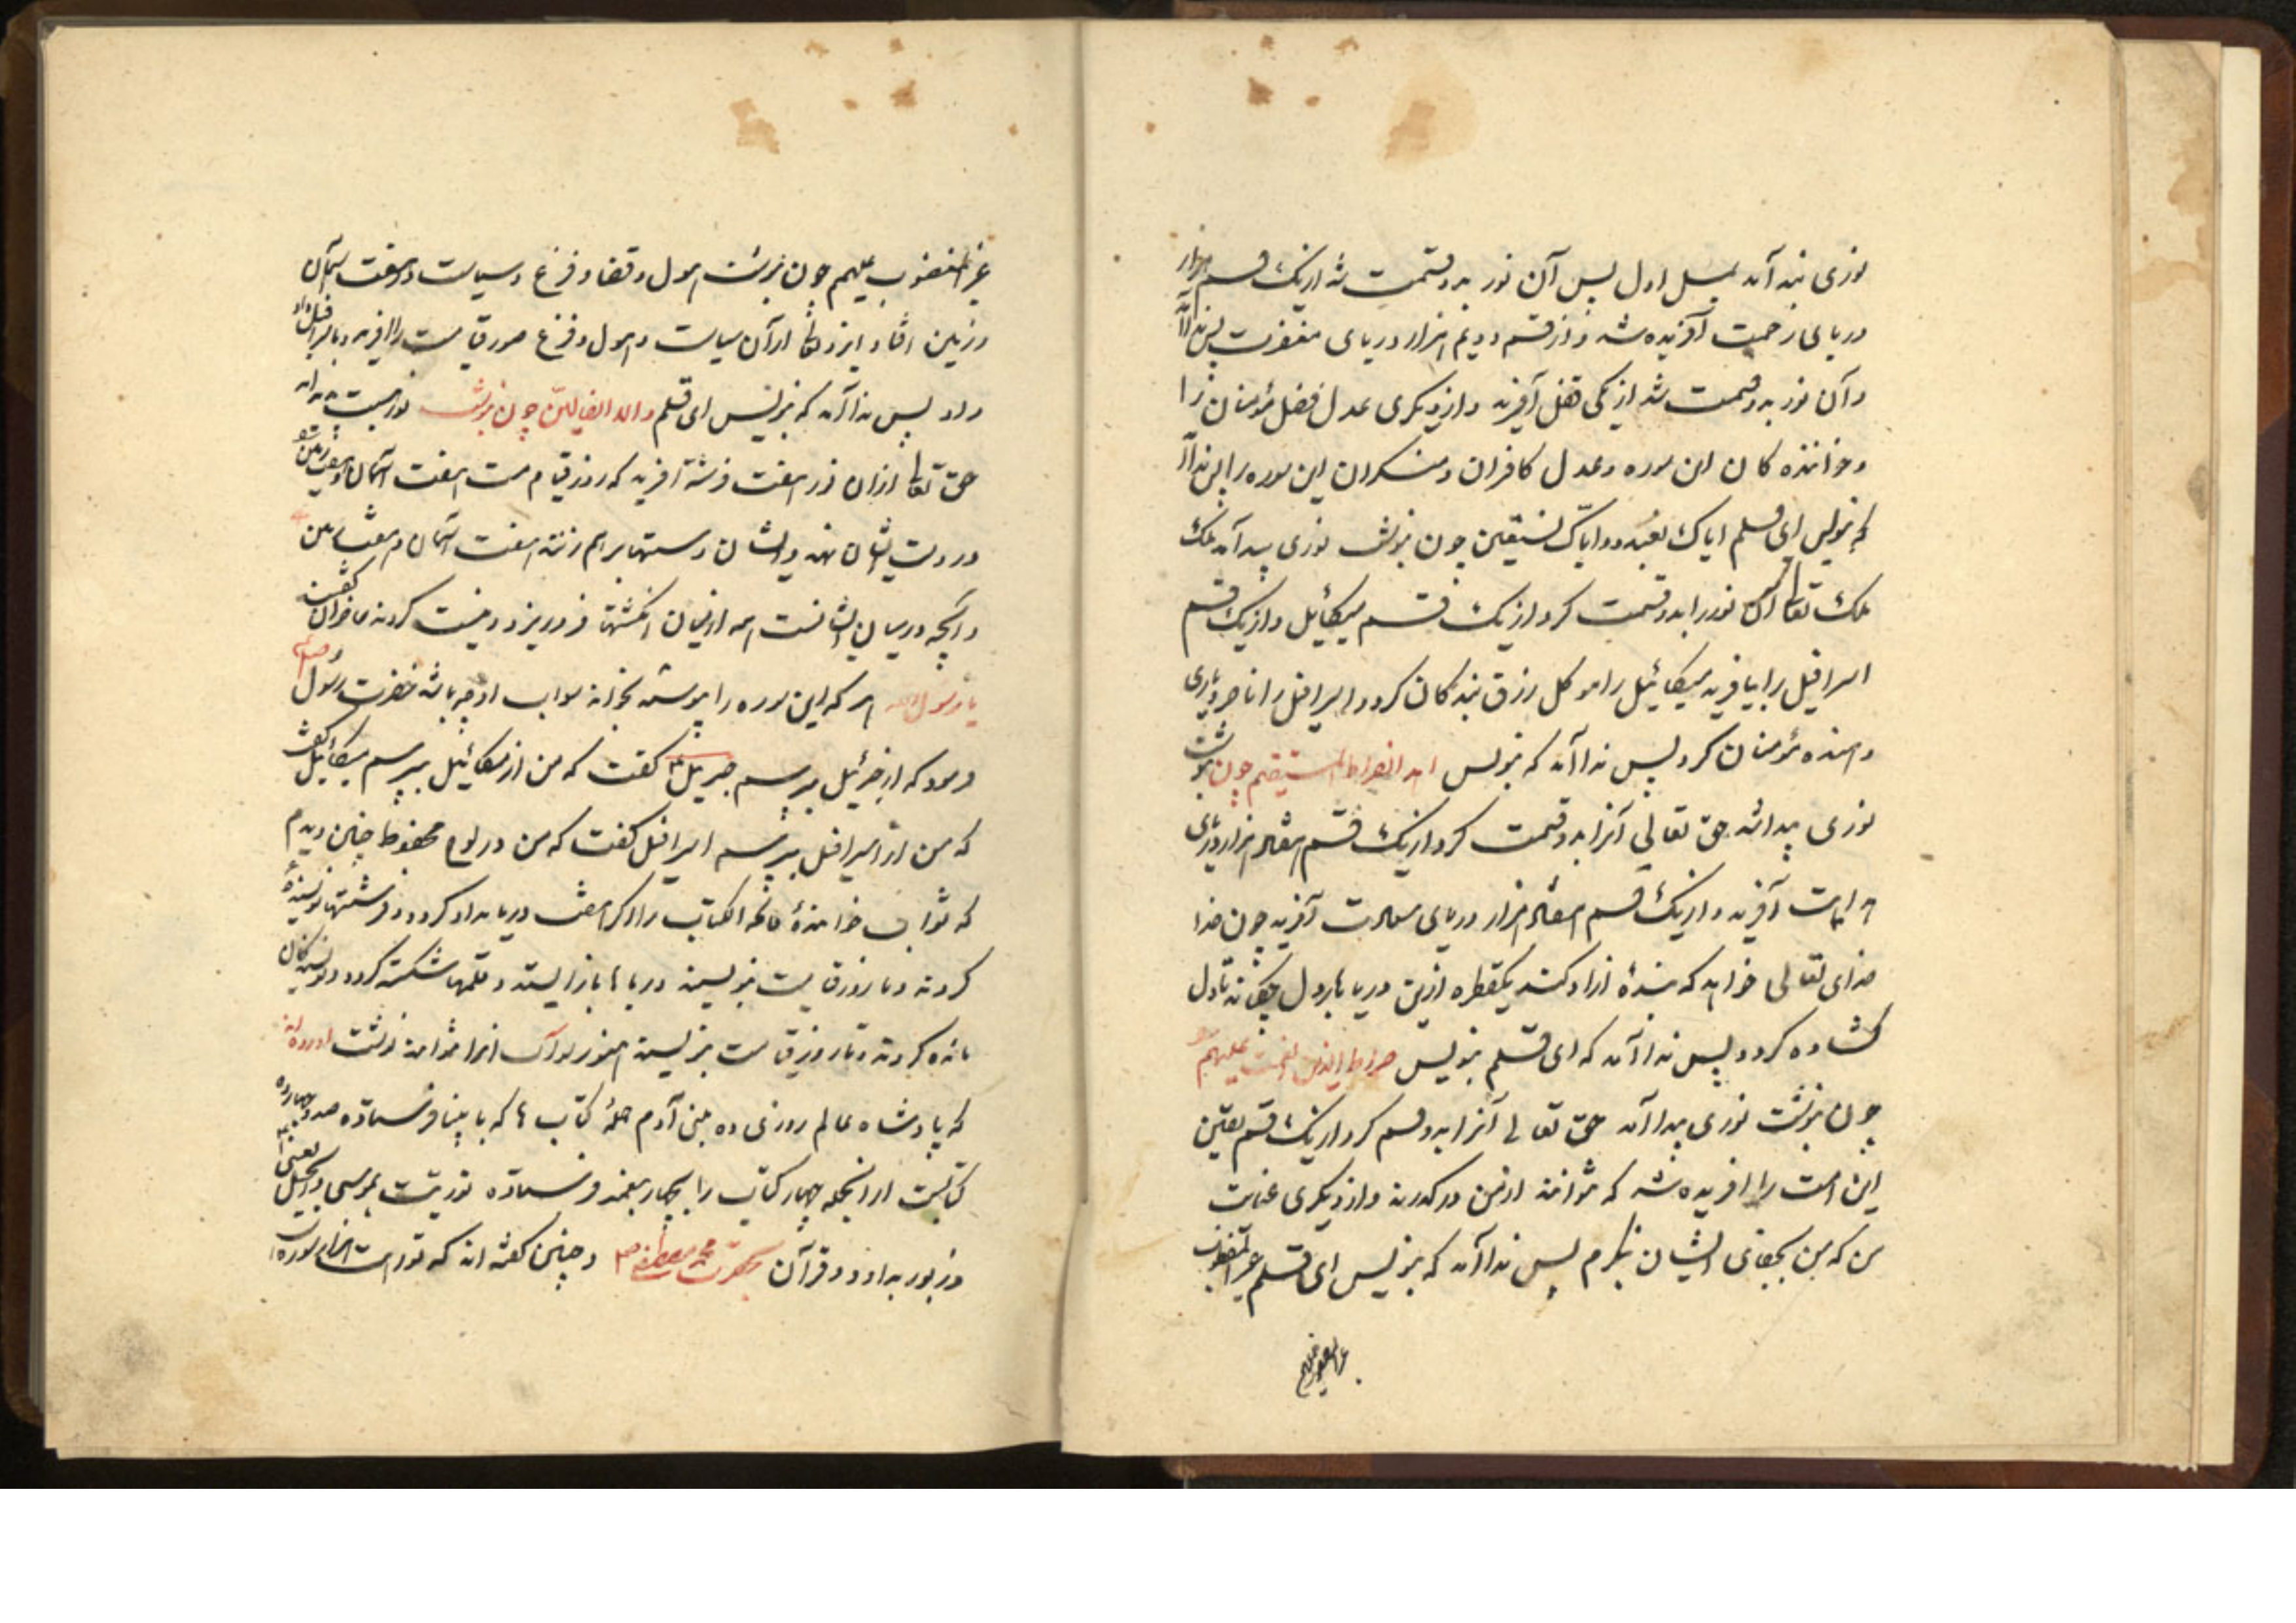 نوری پیدا آمد بمثل اول پس آن نور بدو قسمت شد از یک قسم هزار
دریای رحمت آفریده شد و از قسم دویم هزار دریای مغفرت پس ندا آمد
و آن نور بدو قسمت شد از یکی فضل آفرید و از دیگری عدل فضل مؤمنان را
و خواننده کان این سوره و عدل کافران و منکران این سوره را پس ندا آمد
که بنویس ای قلم ایاک نعبد و ایاک نستعین چون بنوشت نوری پیدا آمد ملک
ملک تعالی آن نور را بدو قسمت کرد از یک قسم میکائیل و از یک قسم
اسرافیل را بیافرید میکائیل را موکل رزق بندکان کرد و اسرافیل را ناصر و یاری
دهنده مؤمنان کرد پس ندا آمد که بنویس اهدنا الصراط المستقیم چون بنوشت
نوری پیدا شد حق تعالی آنرا بدو قسمت کرد از یک قسم هفتاد هزار دریای
هدایت آفرید و از یک قسم هفتاد هزار دریای سعادت آفرید چون خدا
خدای تعالی خواهد که بندۀ ازاد کند یکقطره ازین دریا بار دل چکاند تا دل
کشاده کردد پس ندا آمد که ای قلم بنویس صراط الذین انعمت علیهم
چون بنوشت نوری پیدا آمد حق تعالی آنرا بدو قسم کرد از یک قسم یقین
این امت را افریده شد که نتوانند ازمن درکدرند و از دیکری عنایت
من که من بجفای ایشان ننکرم پس ندا آمد که بنویس ای قلم غیر المغضوب
غیر المغضوب علیهم
غیر المغضوب علیهم چون بنوشت هول و قضا و فزع و سیاست در هفت آسمان
و زمین افتاد ایزد تعالی از آن سیاست و هول و فزع صور قیامت را افرید و باسرافیل
داد پس ندا آمد که بنویس ای قلم ولا الضالین چون بنوشت نور هیبت پیدا آمد
حق تعالی ازان نور هفت فرشته آفرید که روز قیامت هفت آسمان و هفت زمین
در دست ایشان نهد و ایشان دستها برهم زنند هفت آسمان و هفت زمین
و آنچه درمیان ایشانست همه ازمیان انکشتها فروریزد و نیست کردند ما خوان گفت
یا رسول الله هر که این سوره را پیوسته بخواند ثواب او چه باشد حضرت رسول صلعم
فرمود که از جبرئیل بپرسم جبریل گفت که من از میکائیل بپرسم میکائیل گفت
که من از اسرافیل بپرسم اسرافیل گفت که من در لوح محفوظ چنین دیدم
که ثواب خوانندۀ فاتحه الکتاب را اکر هفت دریا مداد کردد و فرشتها نویسندۀ
کردند و تا روز قیامت بنویسند دریاها باز ایستد و قلمها شکسته کردد و نویسندکان
مانده کردند و تا روز قیامت بنویسند هنوز ثواب انرا نتوانند نوشت اورده اند
که پادشاه عالم روزی ده بنی آدم جملۀ کتاب ها که بانبیا فرستاده صد و چهارده
کتابست ازانجمله چهار کتاب را بچهار پیغمبر فرستاده توریت بموسی و انجیل بعیسی
و زبور بداود و قرآن بحضرت محمد مصطفی صلعم و چنین گفته اند که توریت هزار سوره